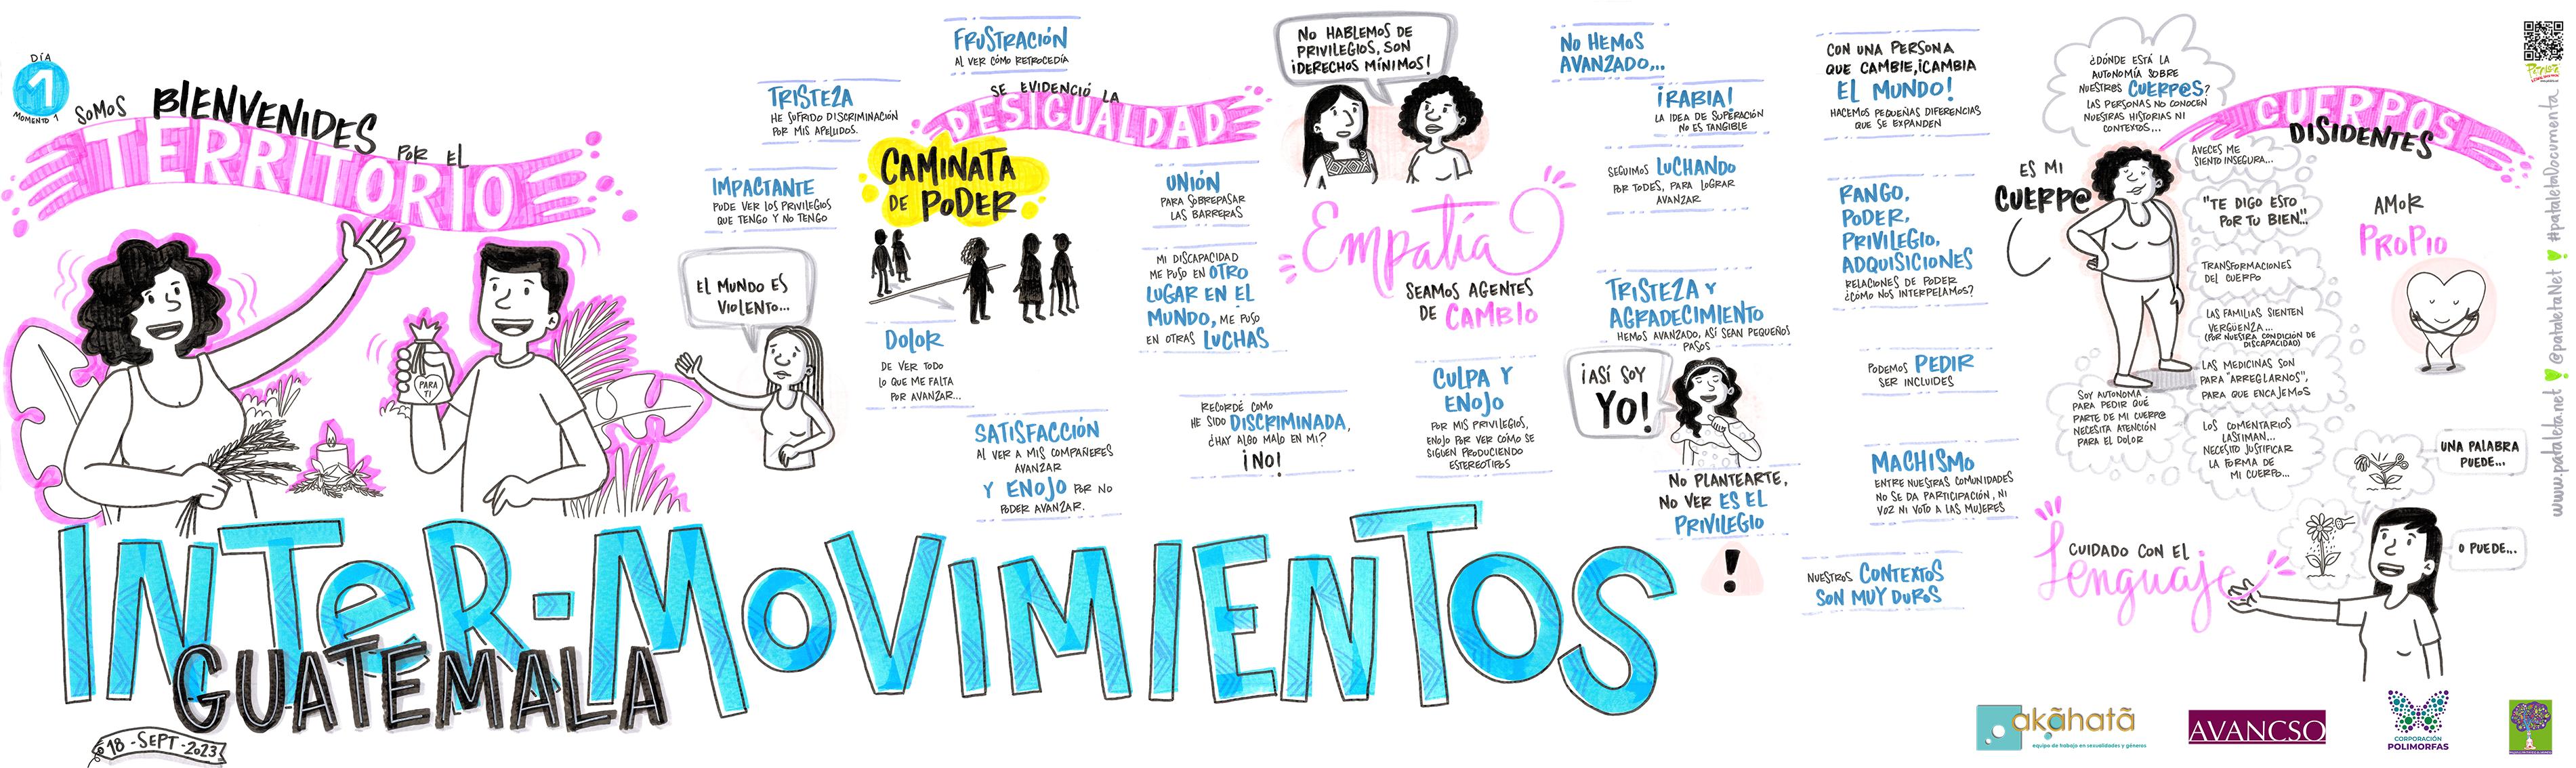 DÍA
1
MOMENTO 1
SOMOS BIENVENIDES POR EL
TERRITORIO
PARA
TI
INTER-MOVIMIENTOS
GUATEMALA
18-SEPT-2023
EL MUNDO ES
VIOLENTO...
TRISTEZA
HE SUFRIDO DISCRIMINACIÓN
POR MIS APELLIDOS.
IMPACTANTE
PUDE VER LOS PRIVILEGIOS
QUE TENGO Y NO TENGO
FRUSTRACIÓN
AL VER CÓMO RETROCEDÍA
SE EVIDENCIÓ LA
DESIGUALDAD
CAMINATA
DE PODER
DOLOR
DE VER TODO
LO QUE ME FALTA
POR AVANZAR...
SATISFACCIÓN
AL VER A MIS COMPAÑERES
AVANZAR
Y ENOJO POR NO
PODER AVANZAR.
UNIÓN
PARA SOBREPASAR
LAS BARRERAS
MI DISCAPACIDAD
ME PUSO EN OTRO
LUGAR EN EL
MUNDO, ME PUSO
EN OTRAS LUCHAS
RECORDÉ COMO
HE SIDO DISCRIMINADA,
¿HAY ALGO MALO EN MI?
¡NO!
NO HABLEMOS DE
PRIVILEGIOS, SON
¡DERECHOS MÍNIMOS!
Empatía
SEAMOS AGENTES
DE CAMBIO
CULPA Y
ENOJO
POR MIS PRIVILEGIOS,
ENOJO POR VER CÓMO SE
SIGUEN PRODUCIENDO
ESTEREOTIPOS
NO HEMOS
AVANZADO...
¡RABIA!
LA IDEA DE SUPERACIÓN
NO ES TANGIBLE
SEGUIMOS LUCHANDO
POR TODES, PARA LOGRAR
AVANZAR
TRISTEZA Y
AGRADECIMIENTO
HEMOS AVANZADO, ASÍ SEAN PEQUEÑOS
PASOS
¡ASÍ SOY
YO!
NO PLANTEARTE,
NO VER ES EL
PRIVILEGIO
!
CON UNA PERSONA
QUE CAMBIE, ¡CAMBIA
EL MUNDO!
HACEMOS PEQUEÑAS DIFERENCIAS
QUE SE EXPANDEN
RANGO,
PODER,
PRIVILEGIO,
ADQUISICIONES
RELACIONES DE PODER
¿CÓMO NOS INTERPELAMOS?
PODEMOS PEDIR
SER INCLUIDES
MACHISMO
ENTRE NUESTRAS COMUNIDADES
NO SE DA PARTICIPACIÓN, NI
VOZ NI VOTO A LAS MUJERES
NUESTROS CONTEXTOS
SON MUY DUROS
¿DÓNDE ESTÁ LA
AUTONOMÍA SOBRE
NUESTROS CUERP@S?
LAS PERSONAS NO CONOCEN
NUESTRAS HISTORIAS NI
CONTEXTOS...
CUERPOS
DISIDENTES
ES MI
CUERP@
AVECES ME
SIENTO INSEGURA...
"TE DIGO ESTO
POR TU BIEN"...
TRANSFORMACIONES
DEL CUERPO
LAS FAMILIAS SIENTEN
VERGÜENZA...
(POR NUESTRA CONDICIÓN DE
DISCAPACIDAD)
LAS MEDICINAS SON
PARA "ARREGLARNOS",
PARA QUE ENCAJEMOS
LOS COMENTARIOS
LASTIMAN...
NECESITO JUSTIFICAR
LA FORMA DE
MI CUERPO...
SOY AUTONOMA
PARA PEDIR QUÉ
PARTE DE MI CUERP@
NECESITA ATENCIÓN
PARA EL DOLOR
AMOR
PROPIO
UNA PALABRA
PUEDE...
O PUEDE...
CUIDADO CON EL
Lenguaje
www.pataleta.net @pataletaNet #pataletaDocumenta
akãhatã
equipo de trabajo en sexualidades y géneros
AVANCSO
CORPORACIÓN
POLIMORFAS